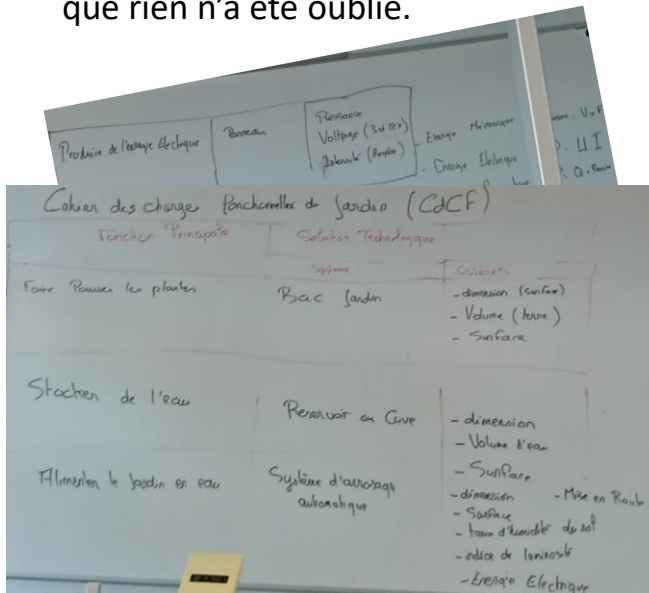 que rien n'a été oublié.
Produire de l'énergie électrique
Panneau
Puissance
Voltage (3 ou 12v)
Intensité (Ampère)
- Energie Mécanique
- Energie Electrique
U I
Cahier des charge fonctionnelles du Jardin (CdCF)
Fonction Principale
Solution Technologique
Système
Critères
Faire Pousser les plantes
Bac Jardin
- dimension (surface)
- Volume (terre)
- Surface
Stocker de l'eau
Reservoir ou Cuve
- dimension
- Volume d'eau
- Surface
Alimenter le Jardin en eau
Système d'arrosage
automatique
- dimension - Mise en Route
- Surface
- taux d'humidité du sol
- indice de luminosité
- Energie Electrique